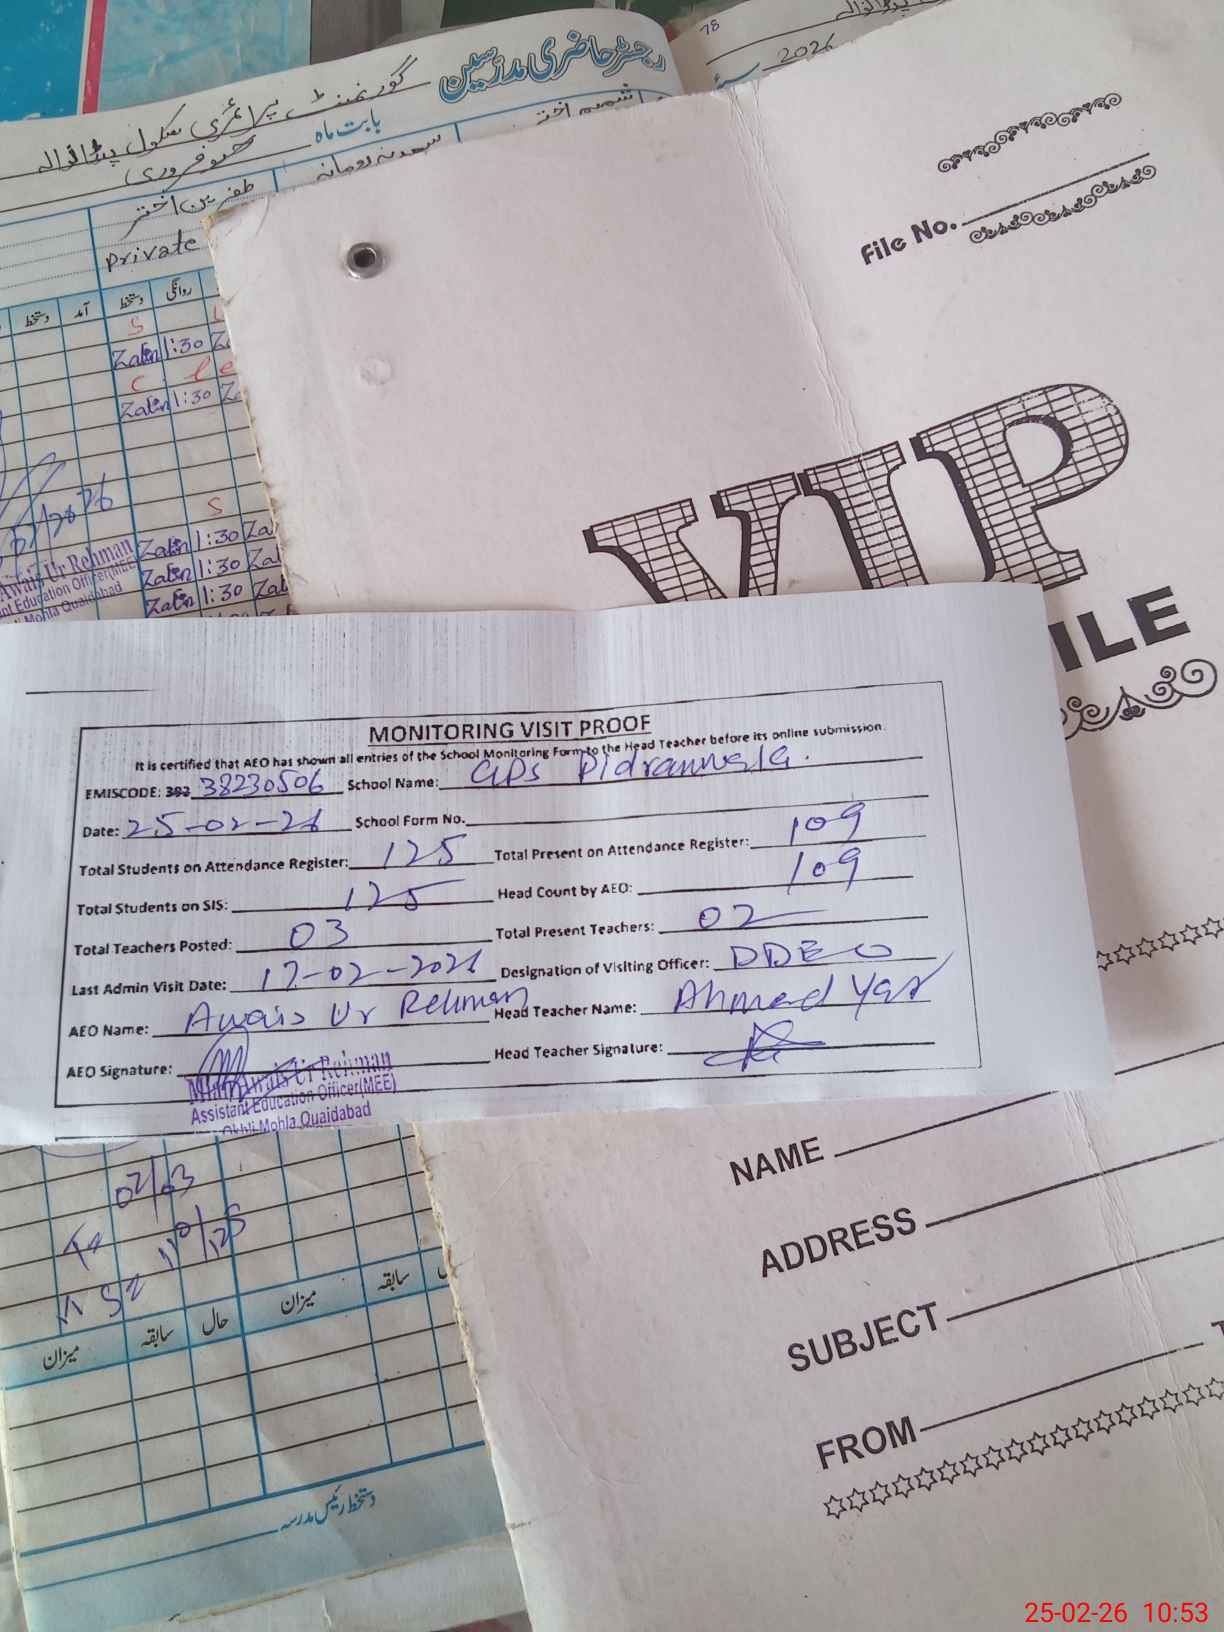 رجسٹر حاضری مدرسین
گورنمنٹ پرائمری سکول پنڈرانوالہ
بابت ماہ
فروری
78
2026
شمیم اختر
ظفرین اختر
private
دستخط آمد دستخط روانگی
S
1:30
C l e
1:30
S
1:30
1:30
1:30
Awais Ur Rehman
Education Officer(MEE)
Mohla Quaidabad
File No.
VIP
ILE
MONITORING VISIT PROOF
It is certified that AEO has shown all entries of the School Monitoring Form to the Head Teacher before its online submission.
EMISCODE: 382 38230506 School Name: GPS Pidrannwala.
Date: 25-02-26 School Form No.
Total Students on Attendance Register: 125 Total Present on Attendance Register: 109
Total Students on SIS: 125 Head Count by AEO: 109
Total Teachers Posted: 03 Total Present Teachers: 02
Last Admin Visit Date: 17-02-2026 Designation of Visiting Officer: DDEO
AEO Name: Awais Ur Rehman Head Teacher Name: Ahmad Yar
AEO Signature: Head Teacher Signature:
Awais Ur Rehman
Assistant Education Officer(MEE)
Okhli Mohla Quaidabad
02/03
110/125
میزان سابقہ حال میزان سابقہ
دستخط رئیس مدرسہ
NAME
ADDRESS
SUBJECT
FROM
25-02-26 10:53